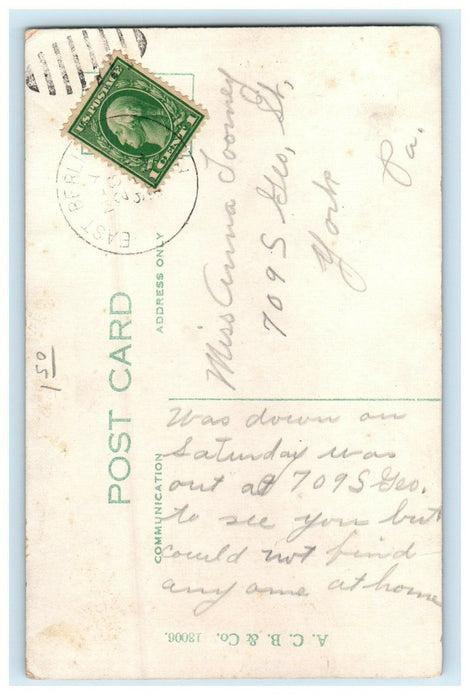 U.S. POSTAGE
1 CENT 1
EAST BERLIN
POST CARD
ADDRESS ONLY
Miss Anna Toomey
709 S Geo, St,
York
Pa.
1.50
COMMUNICATION
Was down on
Saturday was
out at 709 S Geo.
to see you but
could not find
any one at home
A. C. B. & Co. 13006.